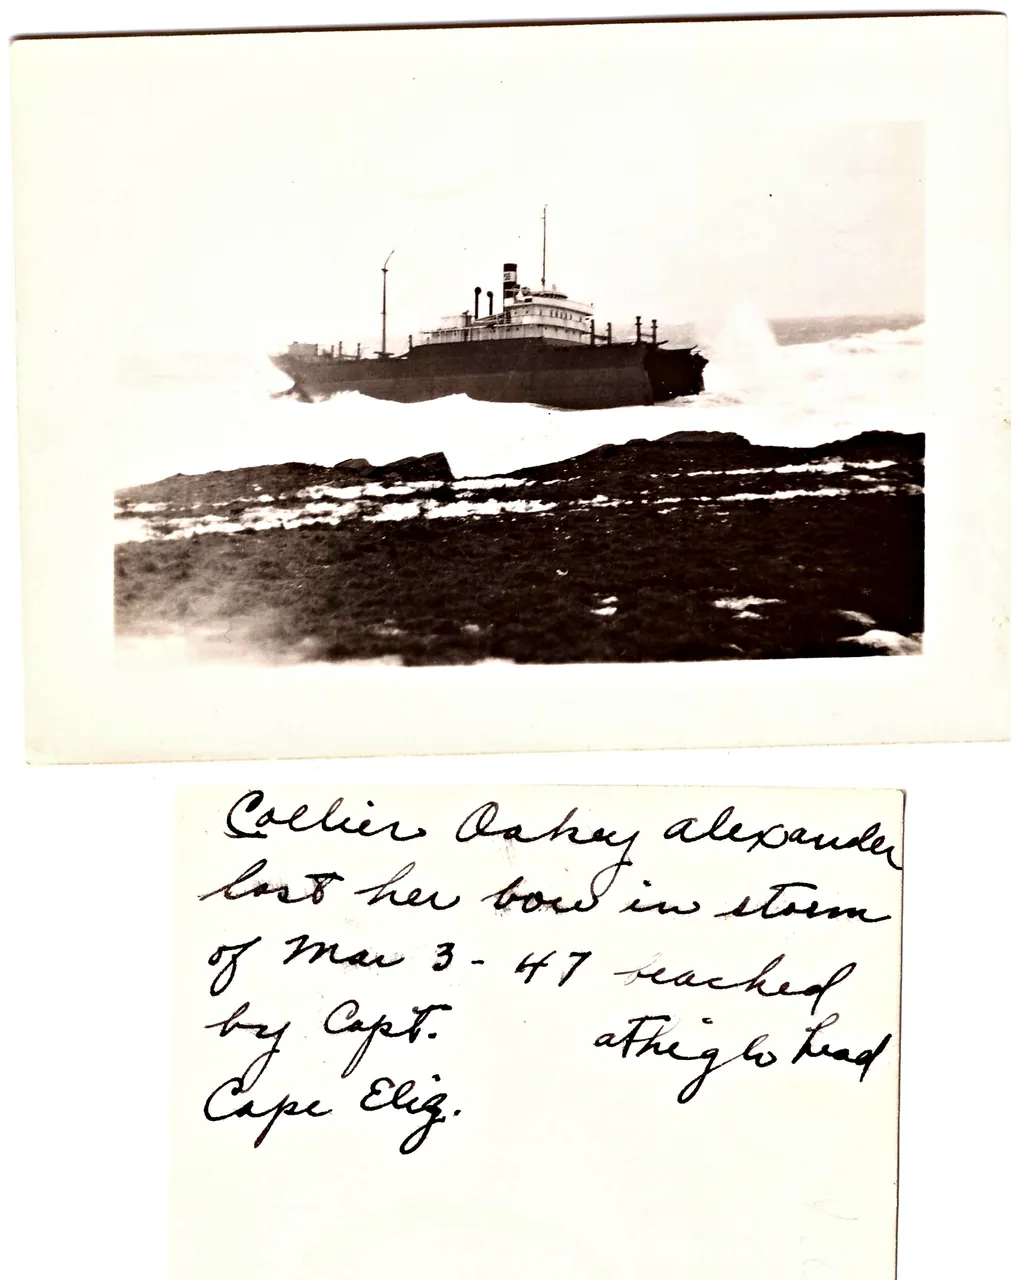 Collier Oakey Alexander
lost her bow in storm
of Mar 3-47 beached
by Capt. at high head
Cape Eliz.